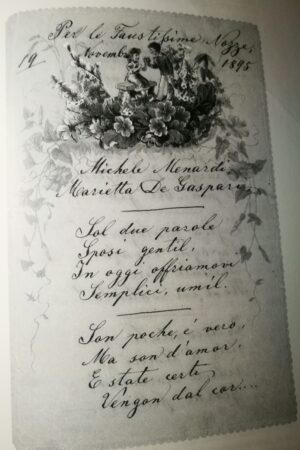 Per le Faustissime Nozze
19 Novembre 1895
Michele Menardi
Marietta De Gaspari
Sol due parole
Sposi gentil,
In oggi offriamovi
Semplici, umil.
Son poche, è vero,
Ma son d'amor,
E state certi
Vengon dal cor....